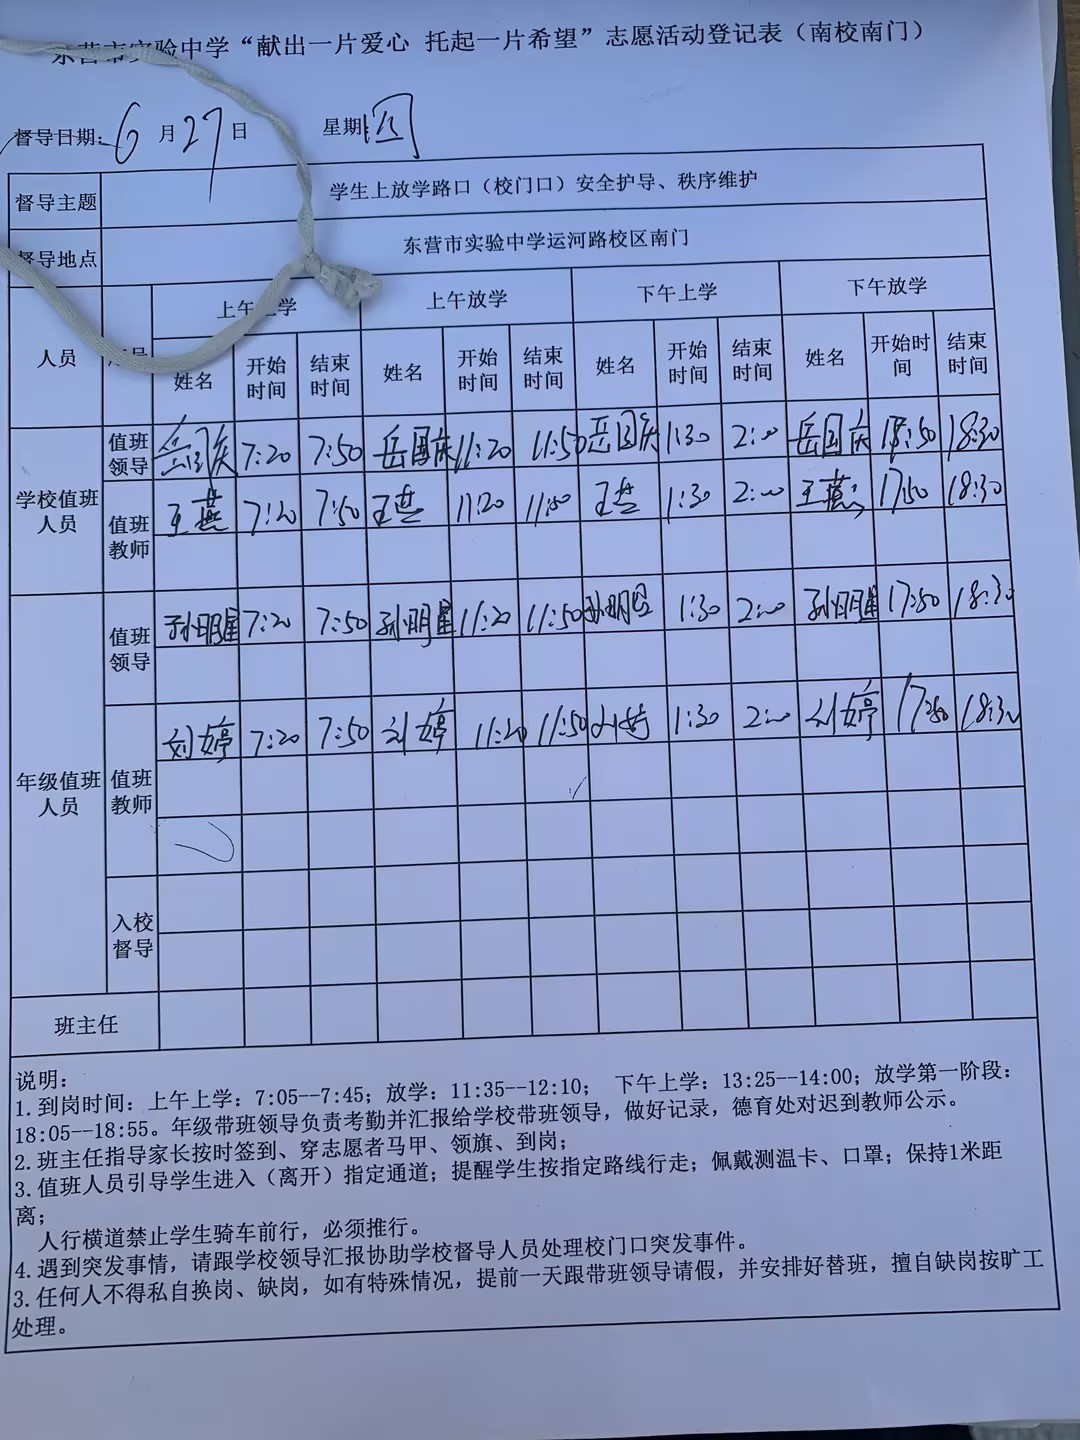 东营市实验中学“献出一片爱心 托起一片希望”志愿活动登记表（南校南门）
督导日期：6月27日 星期四
督导主题 学生上放学路口（校门口）安全护导、秩序维护
督导地点 东营市实验中学运河路校区南门
人员 上午上学 上午放学 下午上学 下午放学
姓名 开始时间 结束时间 姓名 开始时间 结束时间 姓名 开始时间 结束时间 姓名 开始时间 结束时间
学校值班人员 值班领导 岳国庆 7:20 7:50 岳国庆 11:20 11:50 岳国庆 1:30 2:00 岳国庆 17:50 18:30
值班教师 王燕 7:20 7:50 王燕 11:20 11:50 王燕 1:30 2:00 王燕 17:50 18:30
年级值班人员 值班领导 孙明星 7:20 7:50 孙明星 11:20 11:50 孙明星 1:30 2:00 孙明星 17:50 18:30
值班教师 刘婷 7:20 7:50 刘婷 11:20 11:50 刘婷 1:30 2:00 刘婷 17:50 18:30
入校督导
班主任
说明：
1.到岗时间：上午上学：7:05--7:45；放学：11:35--12:10； 下午上学：13:25--14:00；放学第一阶段：
18:05--18:55。年级带班领导负责考勤并汇报给学校带班领导，做好记录，德育处对迟到教师公示。
2.班主任指导家长按时签到、穿志愿者马甲、领旗、到岗；
3.值班人员引导学生进入（离开）指定通道；提醒学生按指定路线行走；佩戴测温卡、口罩；保持1米距
离；
人行横道禁止学生骑车前行，必须推行。
4.遇到突发事情，请跟学校领导汇报协助学校督导人员处理校门口突发事件。
3.任何人不得私自换岗、缺岗，如有特殊情况，提前一天跟带班领导请假，并安排好替班，擅自缺岗按旷工
处理。